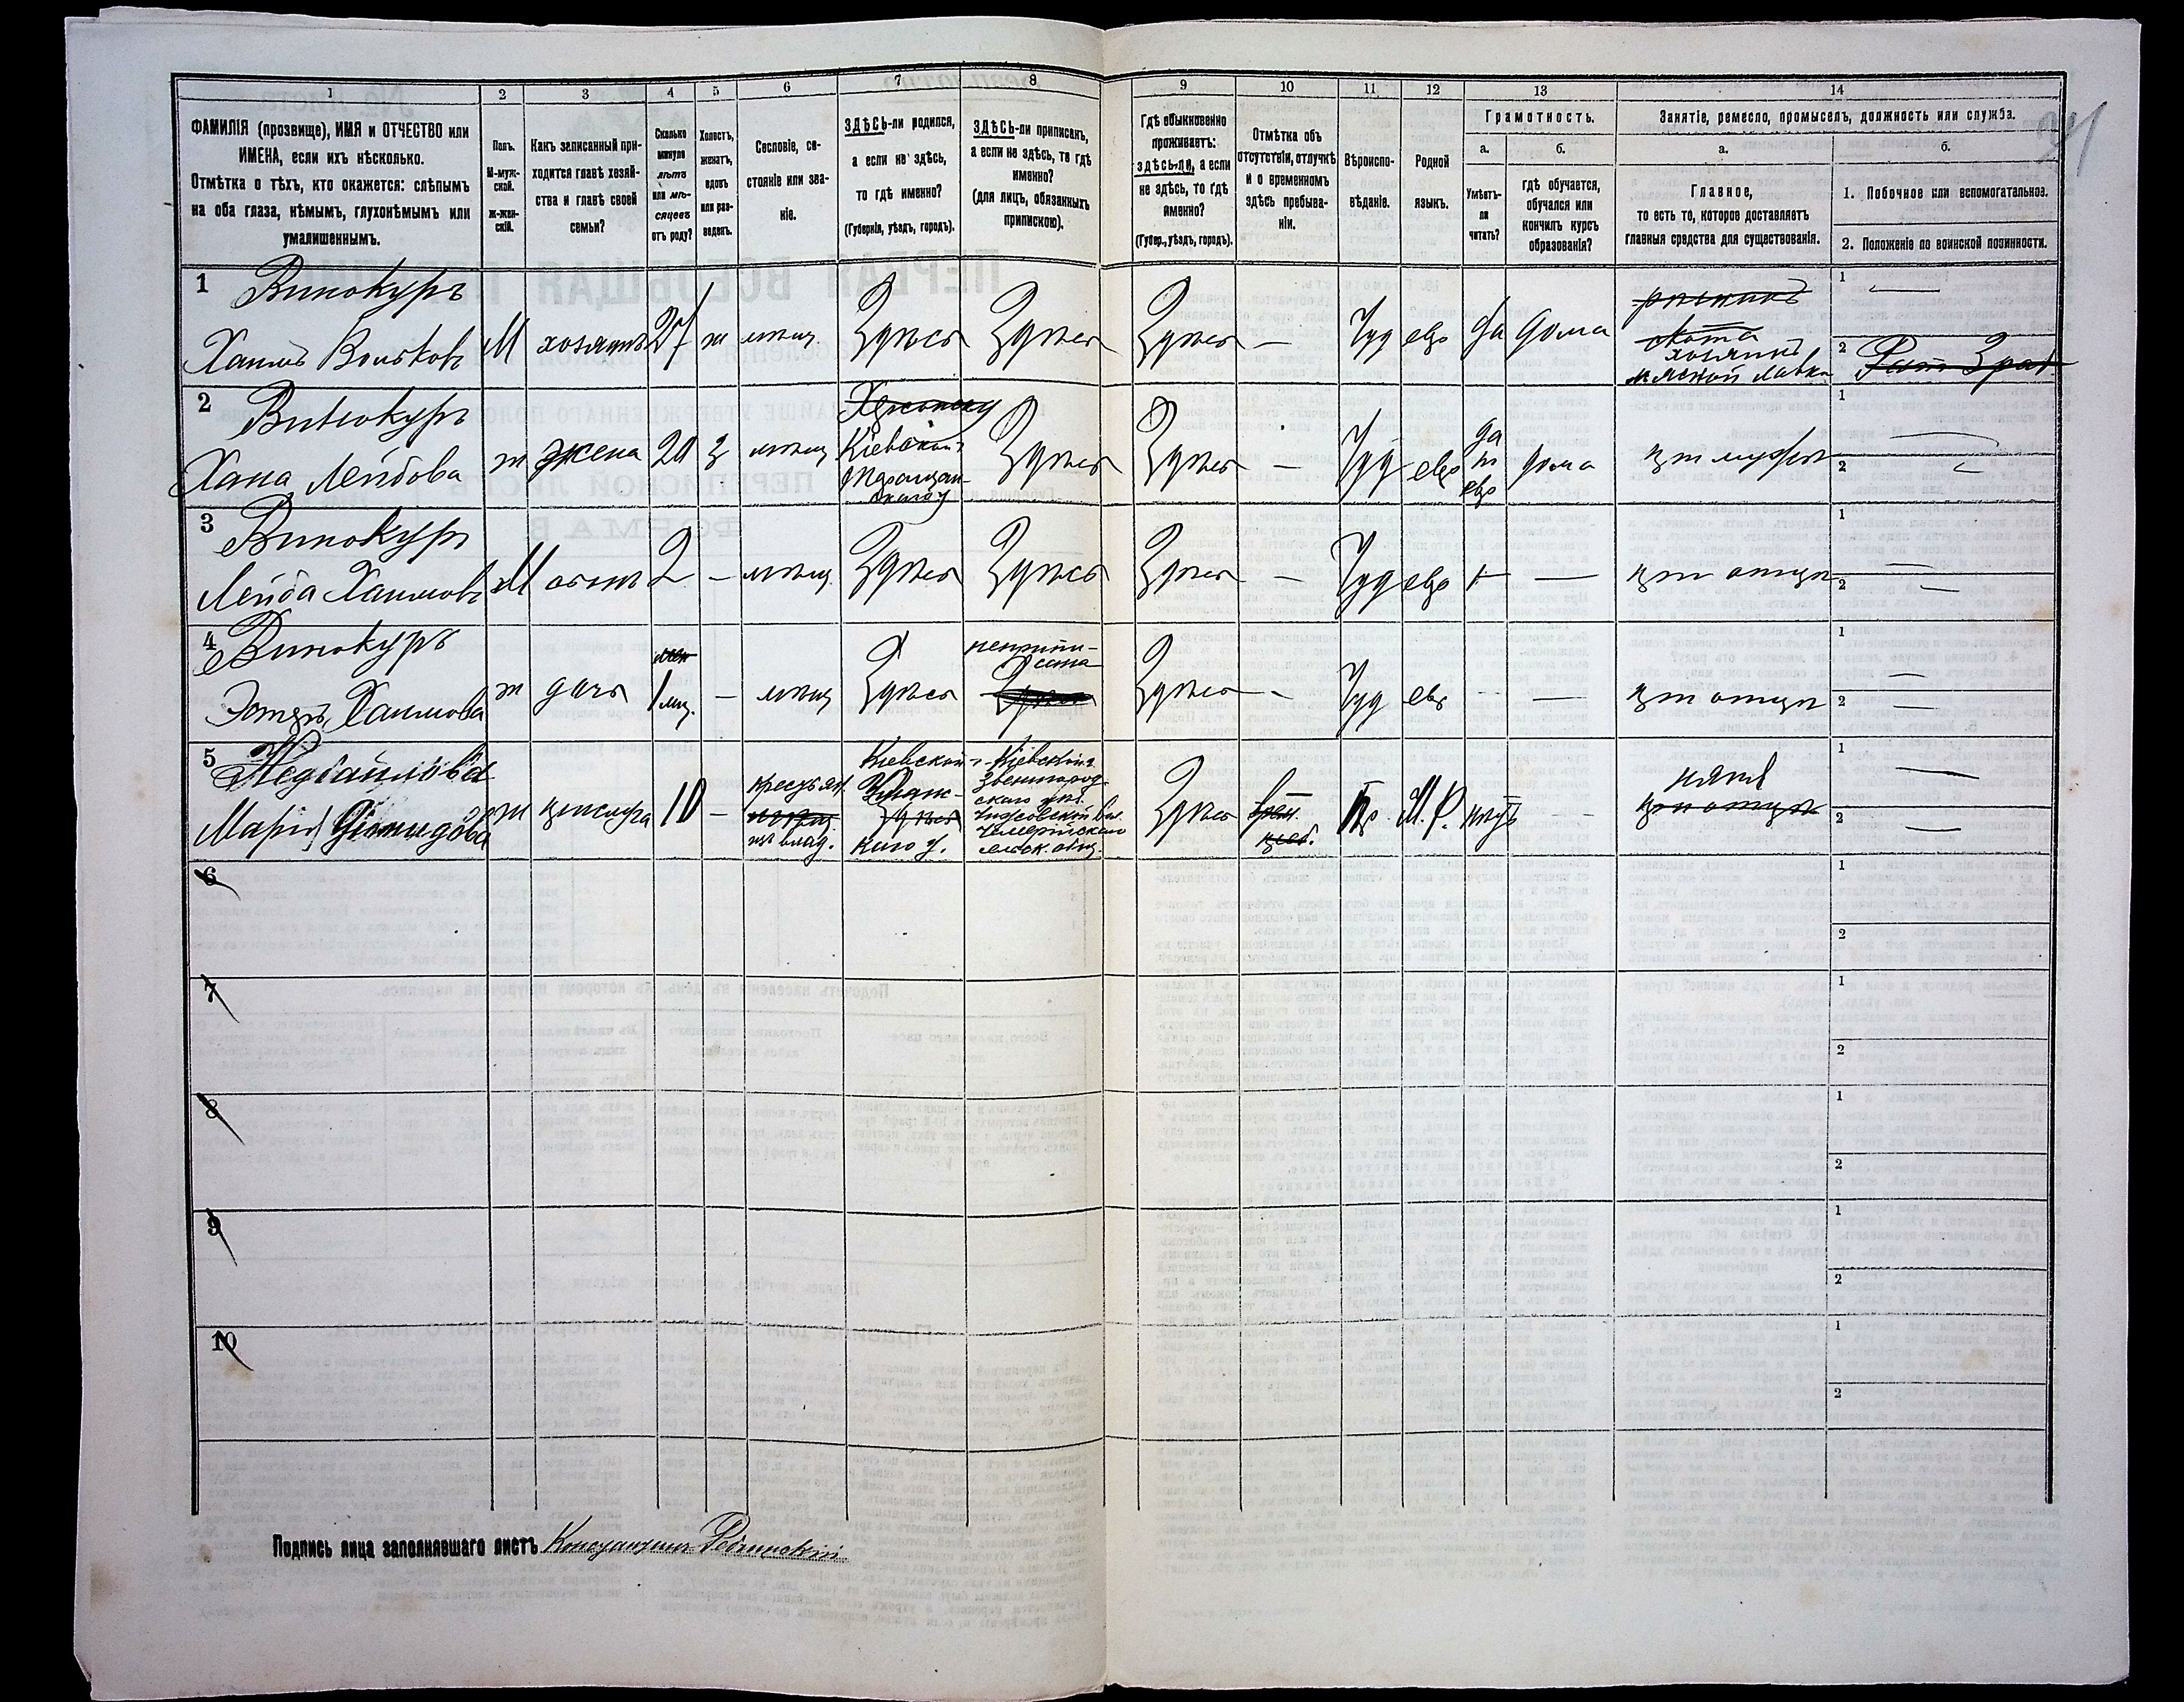 1 2 3 4 5 6 7 8 9 10 11 12 13 14
ФАМИЛІЯ (прозвище), ИМЯ и ОТЧЕСТВО или
ИМЕНА, если ихъ нѣсколько.
Отмѣтка о тѣхъ, кто окажется: слѣпымъ
на оба глаза, нѣмымъ, глухонѣмымъ или
умалишеннымъ.
Полъ.
М-муж-
ской.
ж-жен-
скій.
Какъ записанный при-
ходится главѣ хозяй-
ства и главѣ своей
семьи?
Сколько
минуло
лѣтъ
или мѣ-
сяцевъ
отъ роду?
Холостъ,
женатъ,
вдовъ
или раз-
веденъ.
Сословіе, со-
стояніе или зва-
ніе.
ЗДѢСЬ-ли родился,
а если не здѣсь,
то гдѣ именно?
(Губернія, уѣздъ, городъ).
ЗДѢСЬ-ли приписанъ,
а если не здѣсь, то гдѣ
именно?
(для лицъ, обязанныхъ
припискою).
Гдѣ обыкновенно
проживаетъ:
здѣсь-ли, а если
не здѣсь, то гдѣ
именно?
(Губер., уѣздъ, городъ).
Отмѣтка объ
отсутствіи, отлучкѣ
и о временномъ
здѣсь пребыва-
ніи.
Вѣроиспо-
вѣданіе.
Родной
языкъ.
Грамотность.
а.
Умѣетъ-
ли
читать?
б.
гдѣ обучается,
обучался или
кончилъ курсъ
образованія?
Занятіе, ремесло, промыселъ, должность или служба.
а.
Главное,
то есть то, которое доставляетъ
главныя средства для существованія.
б.
1. Побочное или вспомогательное.
2. Положеніе по воинской повинности.
1 Винокуръ
Хаимъ Вольковъ М хозяинъ 27 ж мѣщ. Здѣсь Здѣсь Здѣсь — Іуд евр да дома
скота
хозяинъ
мясной лавки
1 —
2
2 Винокуръ
Хана Лейбова ж жена 20 з мѣщ
Кіевской г
Таращан-
скаго у
Здѣсь Здѣсь — Іуд евр
да
по
евр
дома при мужѣ
1 —
2
3 Винокуръ
Лейба Хаимовъ М сынъ 2 — мѣщ. Здѣсь Здѣсь Здѣсь — Іуд евр — — при отцѣ
1 —
2 —
4 Винокуръ
Эстеръ Хаимова ж дочь
1 мѣс. — мѣщ Здѣсь
неприпи-
сана
Здѣсь
Здѣсь - Іуд евр — при отцѣ
1 —
2 —
5
Марія ж прислуга 10 —
крестьян.
изъ влад.
Кіевской г.
Уман-
Здѣсь
скаго у.
Кіевской г.
Звенигород-
скаго уѣз.
Здѣсь
врем.
преб.
Пр. М.Р. нѣтъ — —
няня
при отцѣ
1 —
2 —
6
1
2
7
1
2
8
1
2
9
1
2
10
1
2
Подпись лица заполнявшаго листъ